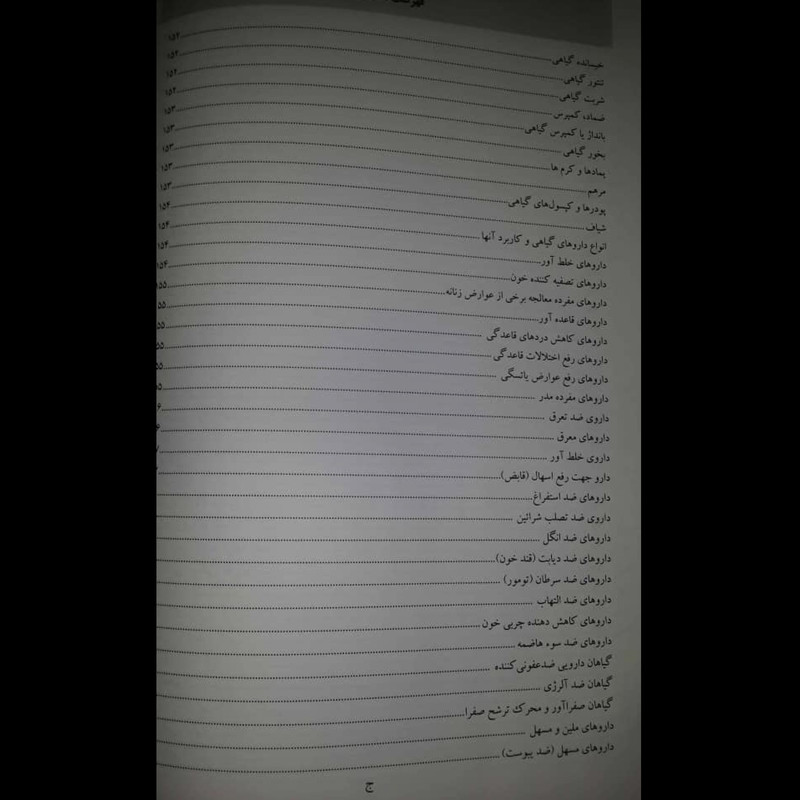 فهرست
خیسانده گیاهی ۱۵۲
تنتور گیاهی ۱۵۲
شربت گیاهی ۱۵۲
ضماد، کمپرس ۱۵۲
بانداژ یا کمپرس گیاهی ۱۵۳
بخور گیاهی ۱۵۳
پمادها و کرم ها ۱۵۳
مرهم ۱۵۳
پودرها و کپسول‌های گیاهی ۱۵۳
شیاف ۱۵۴
انواع داروهای گیاهی و کاربرد آنها ۱۵۴
داروهای خلط آور ۱۵۴
داروهای تصفیه کننده خون ۱۵۴
داروهای مفرده معالجه برخی از عوارض زنانه ۱۵۵
داروهای قاعده آور ۵۵
داروهای کاهش دردهای قاعدگی ۵۵
داروهای رفع اختلالات قاعدگی ۵۵
داروهای رفع عوارض یائسگی ۵۵
داروهای مفرده مدر ۵
داروی ضد تعرق ۶
داروهای معرق ۶
داروی خلط آور
دارو جهت رفع اسهال (قابض)
داروهای ضد استفراغ
داروی ضد تصلب شرائین
داروهای ضد انگل
داروهای ضد دیابت (قند خون)
داروهای ضد سرطان (تومور)
داروهای ضد التهاب
داروهای کاهش دهنده چربی خون
داروهای ضد سوء هاضمه
گیاهان دارویی ضدعفونی‌کننده
گیاهان ضد آلرژی
گیاهان صفراآور و محرک ترشح صفرا
داروهای ملین و مسهل
داروهای مسهل (ضد یبوست)
ج